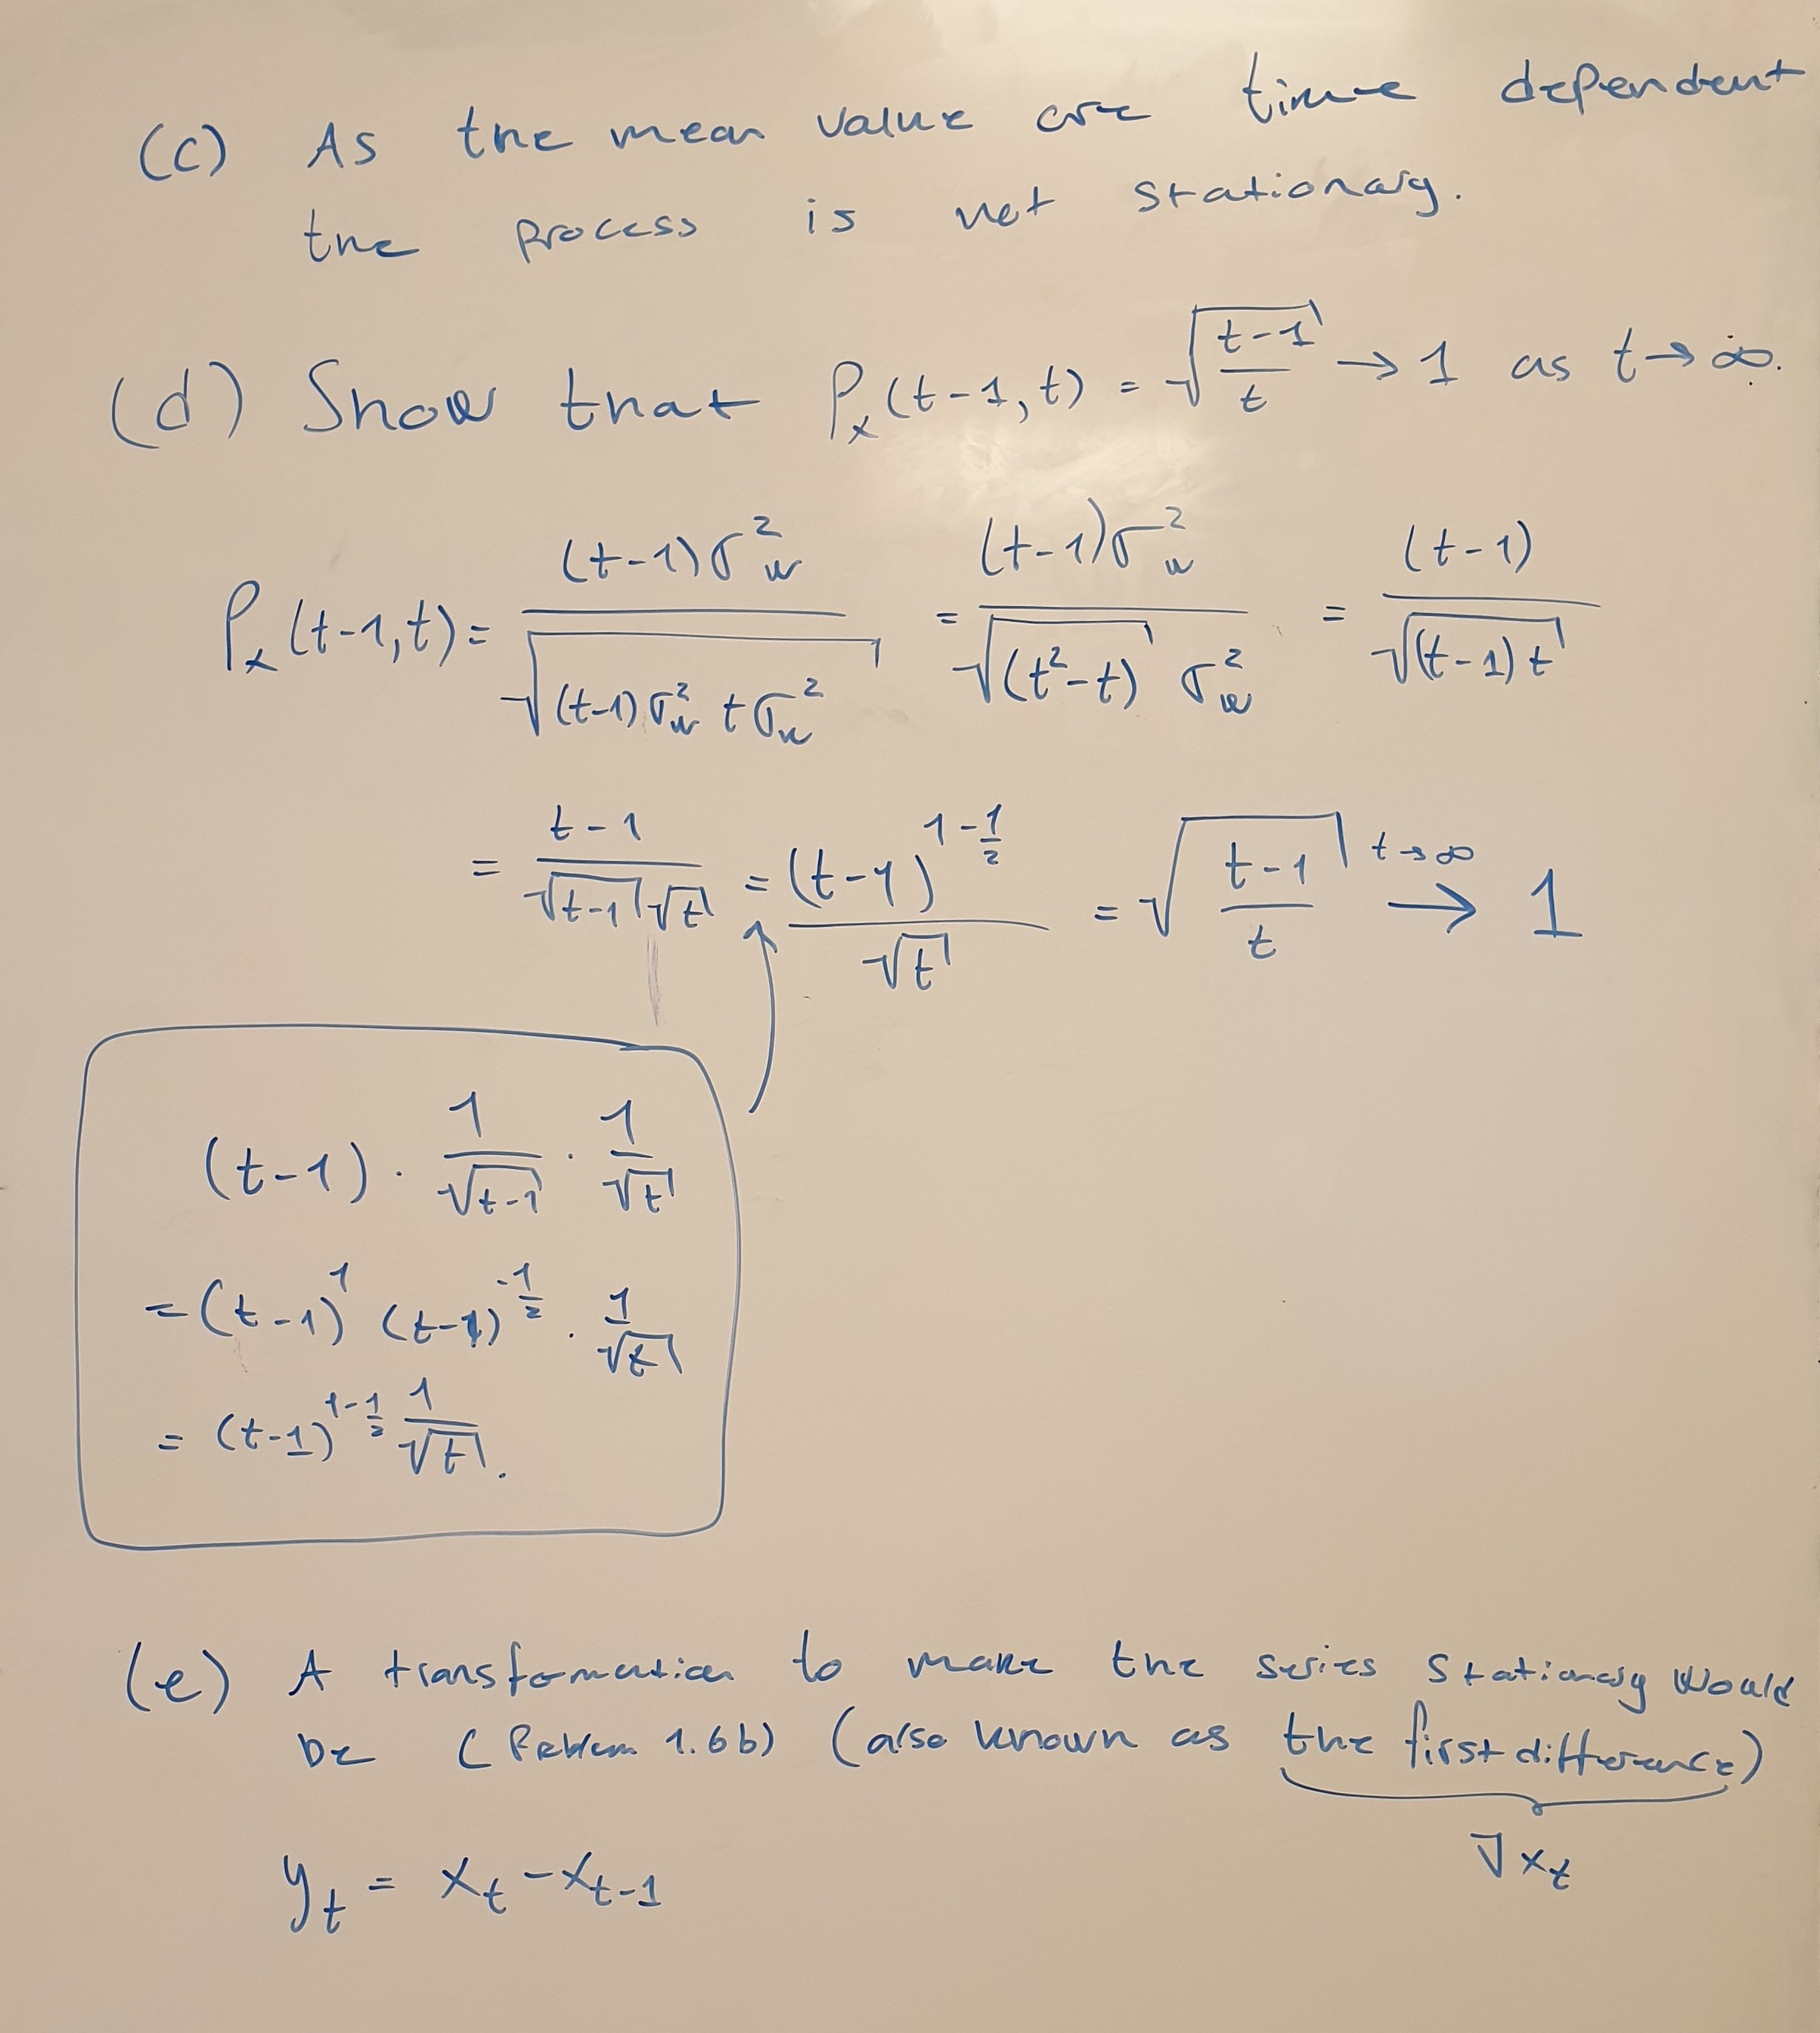 (c) As the mean value are time dependent
the process is not stationary.
(d) Show that ρₓ(t-1, t) = √((t-1)/t) → 1 as t → ∞.
ρₓ(t-1, t) = (t-1)σ²_w / √((t-1)σ²_w tσ_w²) = (t-1)σ²_w / (√(t²-t) σ²_w) = (t-1) / √((t-1)t)
= t-1 / (√(t-1) √t) = (t-1)^(1-1/2) / √t = √((t-1)/t) →^(t→∞) 1
(t-1) · 1/√(t-1) · 1/√t
= (t-1)¹ (t-1)^(-1/2) · 1/√t
= (t-1)^(1-1/2) 1/√t.
(e) A transformation to make the series stationary would
be (Problem 1.6b) (also known as the first difference)
∇xₜ
yₜ = xₜ - xₜ₋₁